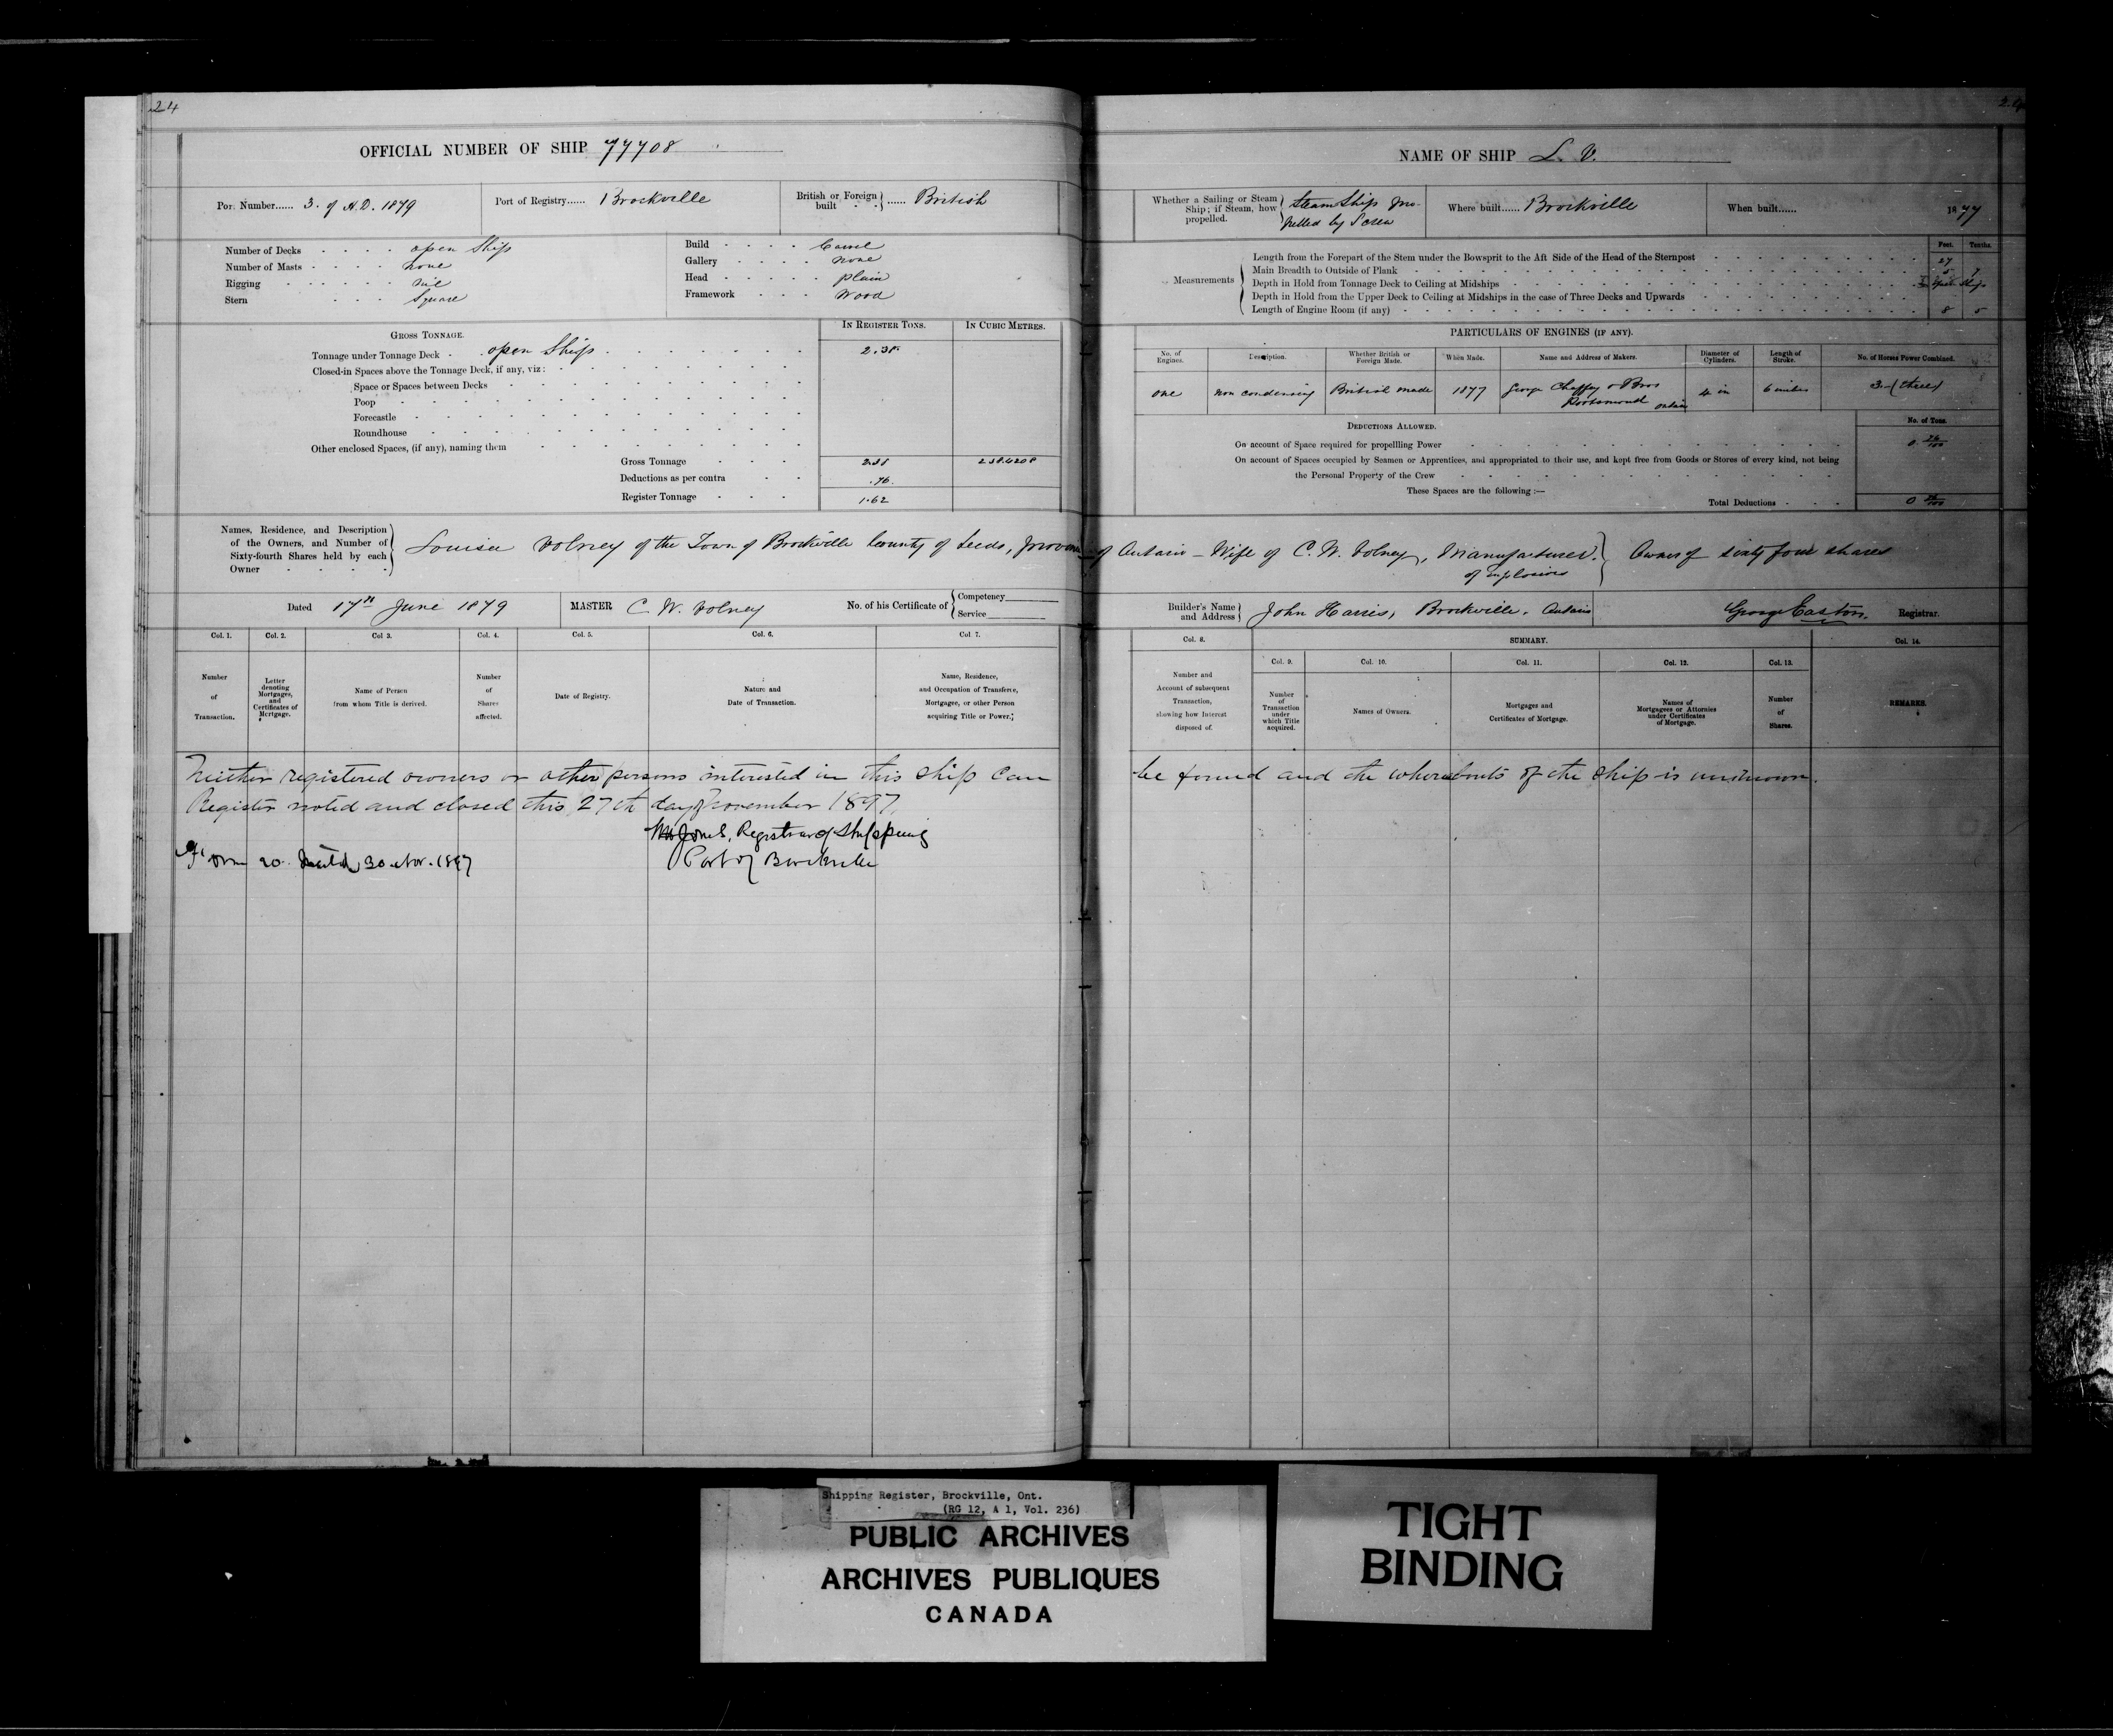 24
OFFICIAL NUMBER OF SHIP 77708
Port Number...... 3. of A.D. 1879
Port of Registry...... Brockville
British or Foreign built - - } ...... British
Number of Decks - - - - open Ship
Number of Masts - - - - none
Rigging - - - - nil
Stern - - - Square
Build - - - - Carvel
Gallery - - - - none
Head - - - - plain
Framework - - - Wood
GROSS TONNAGE.
IN REGISTER TONS.
IN CUBIC METRES.
Tonnage under Tonnage Deck - open Ship 2.38
Closed-in Spaces above the Tonnage Deck, if any, viz:
Space or Spaces between Decks
Poop
Forecastle
Roundhouse
Other enclosed Spaces, (if any), naming them
Gross Tonnage - - - 2.38
Deductions as per contra - - .76
Register Tonnage - - - 1.62
Names, Residence, and Description
of the Owners, and Number of
Sixty-fourth Shares held by each
Owner
Louisa Volney of the Town of Brockville County of Leeds, Province of Ontario - Wife of C. W. Volney, Manufacturer of explosives } Owner of sixty four shares
Dated 17th June 1879
MASTER C. W. Volney
No. of his Certificate of { Competency
Service
Col. 1.
Col. 2.
Col 3.
Col. 4.
Col. 5.
Col. 6.
Col. 7.
Number of Transaction.
Letter denoting Mortgages, and Certificates of Mortgage.
Name of Person from whom Title is derived.
Number of Shares affected.
Date of Registry.
Nature and Date of Transaction.
Name, Residence, and Occupation of Transferee, Mortgagee, or other Person acquiring Title or Power.
Neither registered owners or other persons interested in this ship can be found and the whereabouts of the ship is unknown.
Register noted and closed this 27th day of November 1897
Jones, Registrar of Shipping
Port of Brockville
Form 20. 30 Nov. 1897
NAME OF SHIP L. V.
Whether a Sailing or Steam
Ship; if Steam, how
propelled.
Steam Ship pro-
pelled by Screw
Where built...... Brockville
When built...... 1877
Measurements
Feet.
Tenths.
Length from the Forepart of the Stem under the Bowsprit to the Aft Side of the Head of the Sternpost 27
Main Breadth to Outside of Plank 5
Depth in Hold from Tonnage Deck to Ceiling at Midships open Ship
Depth in Hold from the Upper Deck to Ceiling at Midships in the case of Three Decks and Upwards
Length of Engine Room (if any) 8 5
PARTICULARS OF ENGINES (IF ANY).
No. of Engines.
Description.
Whether British or Foreign Made.
When Made.
Name and Address of Makers.
Diameter of Cylinders.
Length of Stroke.
No. of Horses Power Combined.
one
non condensing
British made
1877
George Chaffey & Bros
Portsmouth Ontario
4 in
6 inches
3 - (three)
DEDUCTIONS ALLOWED.
No. of Tons.
On account of Space required for propellling Power 0 76/100
On account of Spaces occupied by Seamen or Apprentices, and appropriated to their use, and kept free from Goods or Stores of every kind, not being
the Personal Property of the Crew
These Spaces are the following :—
Total Deductions - - - 0 76/100
Builder's Name
and Address
John Harris, Brockville, Ontario
George Easton, Registrar.
Col. 8.
SUMMARY.
Col. 14.
Col. 9.
Col. 10.
Col. 11.
Col. 12.
Col. 13.
Number and Account of subsequent Transaction, showing how Interest disposed of.
Number of Transaction under which Title acquired.
Names of Owners.
Mortgages and Certificates of Mortgage.
Names of Mortgagees or Attornies under Certificates of Mortgage.
Number of Shares.
REMARKS.
Shipping Register, Brockville, Ont.
(RG 12, A 1, Vol. 236)
PUBLIC ARCHIVES
ARCHIVES PUBLIQUES
CANADA
TIGHT
BINDING